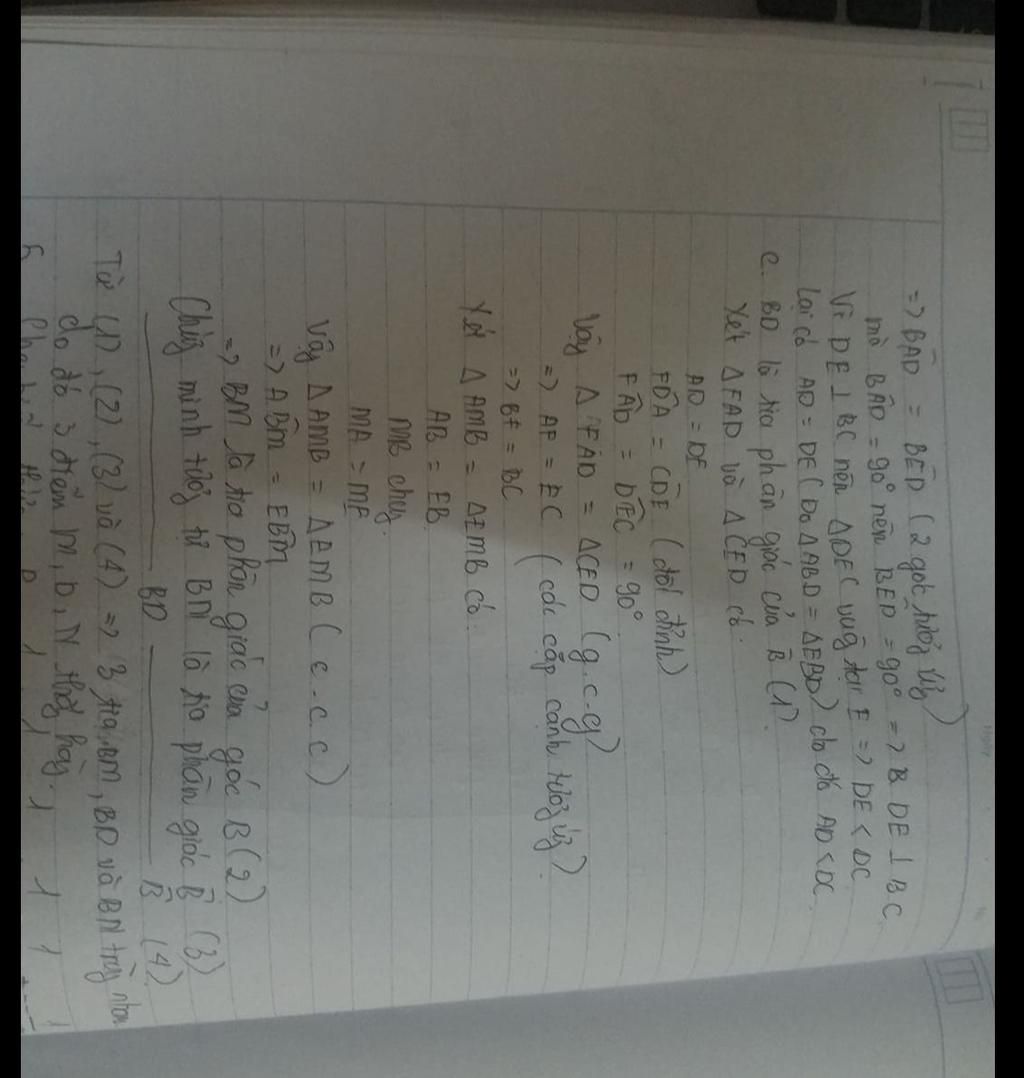 => BÂD = BÊD (2 góc tương ứng)
mà BÂD = 90° nên BED = 90° => DE ⊥ BC
Vì DE ⊥ BC nên ΔDEC vuông tại E => DE < DC
lại có AD = DE (Do ΔABD = ΔEBD) do đó AD < DC
c. BD là tia phân giác của B̂ (1)
Xét ΔFAD và ΔCED có.
AD = DE
FD̂A = CD̂E (đối đỉnh)
FÂD = DÊC = 90°
Vậy ΔFAD = ΔCED (g.c.g)
=> AF = EC (các cặp cạnh tương ứng)
=> BF = BC
Xét ΔAMB = ΔEMB có.
AB = EB
MB chung
MA = ME
Vậy ΔAMB = ΔEMB (c.c.c)
=> AB̂M = EB̂M
=> BM là tia phân giác của góc B (2)
Chứng minh tương tự BN là tia phân giác B̂ (3)
BD B̂ (4)
Từ (1), (2), (3) và (4) => 3 tia BM, BD và BN trùng nhau
do đó 3 điểm M, D, N thẳng hàng.